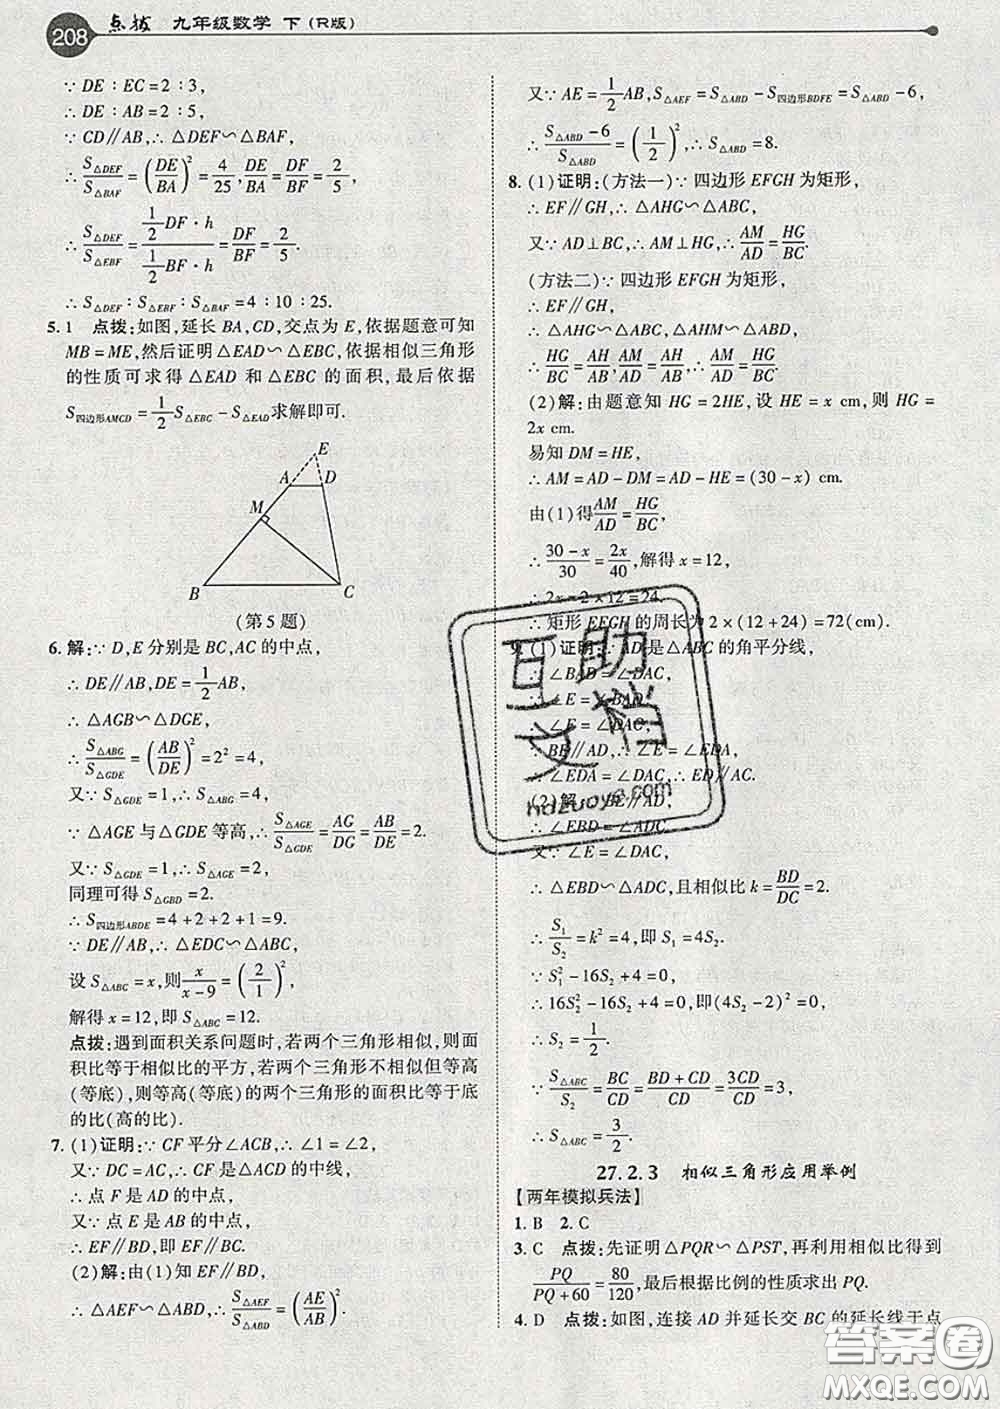 208 点拨 九年级数学 下(R版)
∵ DE∶EC=2∶3,
∴ DE∶AB=2∶5.
∵ CD∥AB,∴ △DEF∽△BAF,
∴ S△DEF/S△BAF=(DE/BA)²=4/25,DE/BA=DF/BF=2/5,
∴ S△DEF/S△EBF=(1/2 DF·h)/(1/2 BF·h)=DF/BF=2/5.
∴ S△DEF∶S△EBF∶S△BAF=4∶10∶25.
5. 1 点拨:如图,延长BA,CD,交点为E,依据题意可知
MB=ME,然后证明△EAD∽△EBC,依据相似三角形
的性质可求得△EAD和△EBC的面积,最后依据
S四边形AMCD=1/2 S△EBC-S△EAD求解即可.
E
A D
M
B C
(第5题)
6. 解:∵ D,E分别是BC,AC的中点,
∴ DE∥AB,DE=1/2 AB,
∴ △AGB∽△DGE,
∴ S△ABG/S△GDE=(AB/DE)²=2²=4,
又∵ S△GDE=1,∴ S△ABG=4,
∵ △AGE与△GDE等高,∴ S△AGE/S△GDE=AG/DG=AB/DE=2.
又∵ S△GDE=1,∴ S△AGE=2,
同理可得S△GBD=2.
∴ S四边形ABDE=4+2+2+1=9.
∵ DE∥AB,∴ △EDC∽△ABC,
设S△ABC=x,则x/(x-9)=(2/1)²,
解得x=12,即S△ABC=12.
点拨:遇到面积关系问题时,若两个三角形相似,则面
积比等于相似比的平方,若两个三角形不相似但等高
(等底),则等高(等底)的两个三角形的面积比等于底
的比(高的比).
7. (1)证明:∵ CF平分∠ACB,∴ ∠1=∠2,
又∵ DC=AC,∴ CF是△ACD的中线,
∴ 点F是AD的中点,
又∵ 点E是AB的中点,
∴ EF∥BD,即EF∥BC.
(2)解:由(1)知EF∥BD,
∴ △AEF∽△ABD,∴ S△AEF/S△ABD=(AE/AB)².
又∵ AE=1/2 AB,S△AEF=S△ABD-S四边形BDFE=S△ABD-6,
∴ (S△ABD-6)/S△ABD=(1/2)²,∴ S△ABD=8.
8. (1)证明:(方法一)∵ 四边形EFGH为矩形,
∴ EF∥GH,∴ △AHG∽△ABC,
又∵ AD⊥BC,∴ AM⊥HG,∴ AM/AD=HG/BC.
(方法二)∵ 四边形EFGH为矩形,
∴ EF∥GH,
∴ △AHG∽△ABC,△AHM∽△ABD,
∴ HG/BC=AH/AB,AM/AD=AH/AB,∴ AM/AD=HG/BC.
(2)解:由题意知HG=2HE,设HE=x cm,则HG=
2x cm.
易知DM=HE,
∴ AM=AD-DM=AD-HE=(30-x) cm.
由(1)得AM/AD=HG/BC,
∴ (30-x)/30=2x/40,解得x=12,
∴ 2x=2×12=24.
∴ 矩形EFGH的周长为2×(12+24)=72(cm).
9. (1)证明:∵ AD是△ABC的角平分线,
∴ ∠BAD=∠DAC,
∵ ∠E=∠BAD,
∴ ∠E=∠DAC,
∵ BE∥AD,∴ ∠E=∠EDA,
∴ ∠EDA=∠DAC,∴ ED∥AC.
(2)解:∵ BE∥AD,
∴ ∠EBD=∠ADC.
又∵ ∠E=∠DAC,
∴ △EBD∽△ADC,且相似比k=BD/DC=2.
∴ S₁/S₂=k²=4,即S₁=4S₂.
∵ S₁²-16S₂+4=0,
∴ 16S₂²-16S₂+4=0,即(4S₂-2)²=0,
∴ S₂=1/2.
∵ S△ABC/S₂=BC/CD=(BD+CD)/CD=3CD/CD=3,
∴ S△ABC=3/2.
27.2.3 相似三角形应用举例
【两年模拟兵法】
1. B 2. C
3. C 点拨:先证明△PQR∽△PST,再利用相似比得到
PQ/(PQ+60)=80/120,最后根据比例的性质求出PQ.
4. D 点拨:如图,连接AD并延长交BC的延长线于点
互助文档
hdzuoye.com
答案圈
MXQE.COM